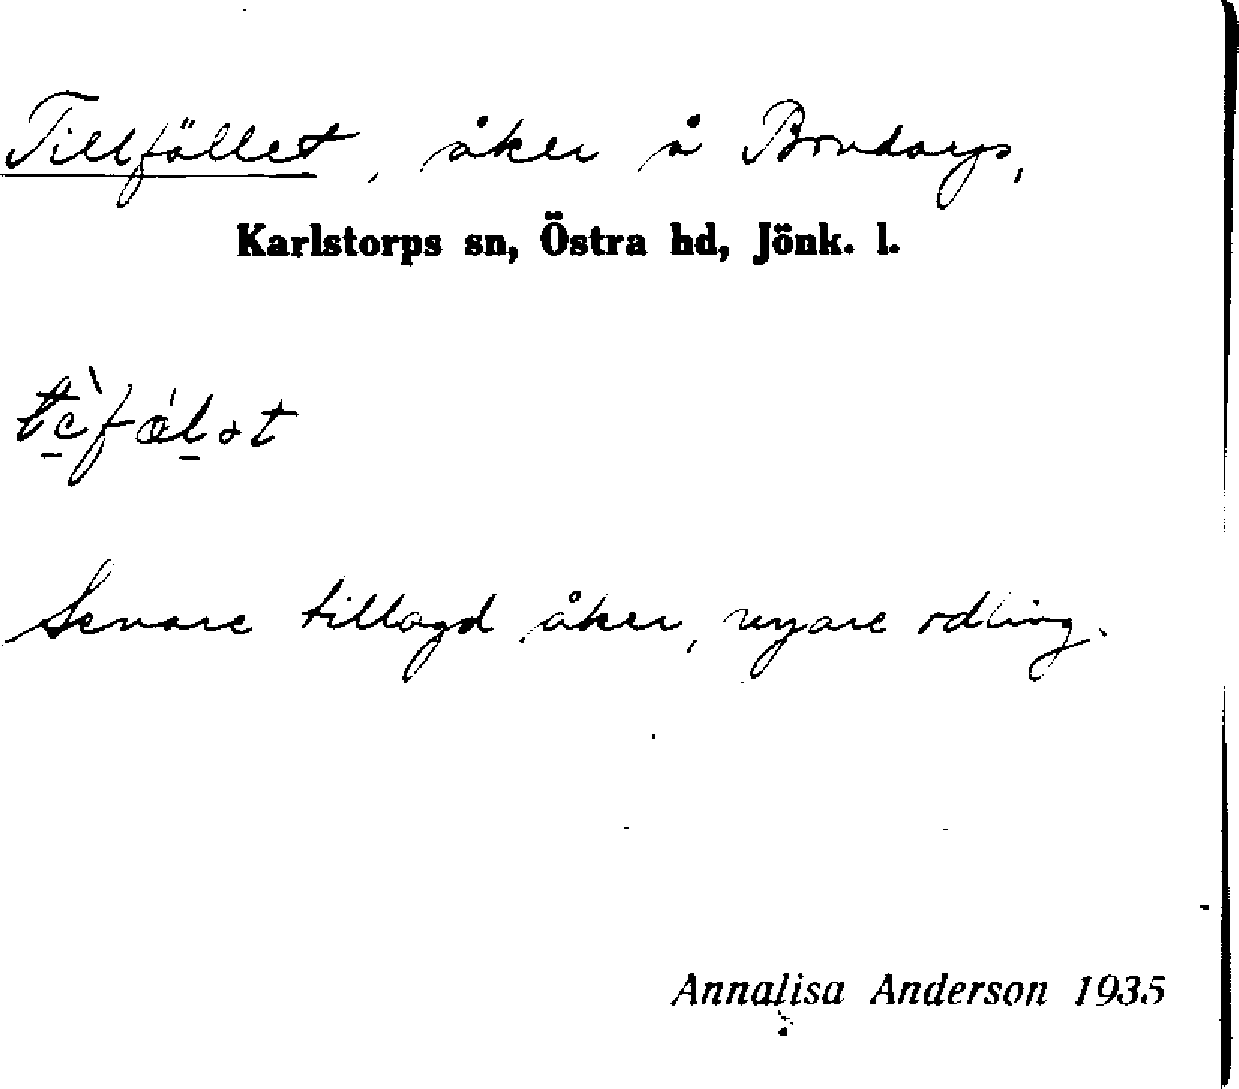 Tillfället, åker å Brudarps,
Karlstorps sn, Östra hd, Jönk. l.
Senare tillagd åker, nyare odling.
Annalisa Anderson 1935